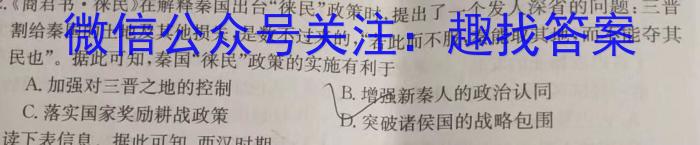 《商君书·徕民》在解释秦国出台“徕民”政策时,提出了一个发人深省的问题:三晋
割给秦
微信公众号关注:趣找答案
民也”。据此可知,秦国“徕民”政策的实施有利于
A.加强对三晋之地的控制 B.增强新秦人的政治认同
C.落实国家奖励耕战政策 D.突破诸侯国的战略包围
读下表信息,据此可知,西汉时期